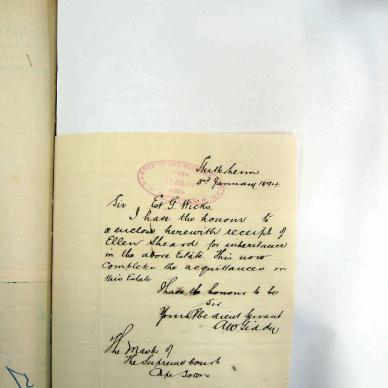 Stutterheim
3rd January 1894
Sir Est G. Wicks
I have the honour to
enclose herewith receipt of
Ellen Sheard for inheritance
in the above Estate. This now
completes the acquittances in
this Estate
I have the honour to be
Sir
Your Obedient Servant
The Master of
The Supreme Court
Cape Town